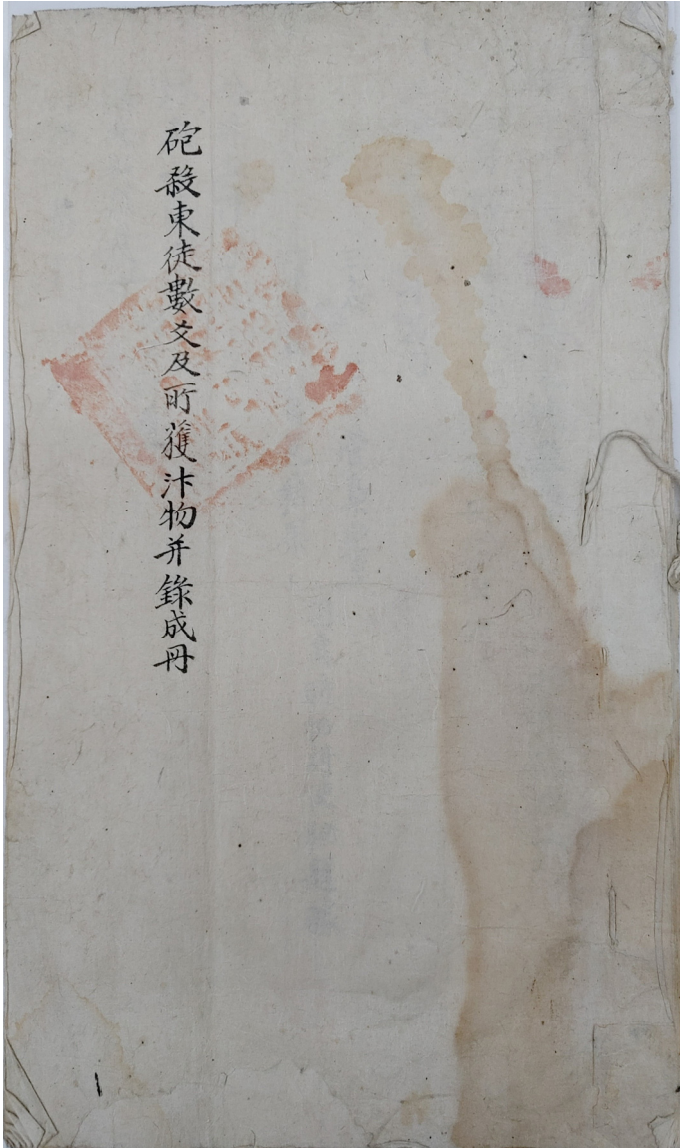 砲殺東徒數爻及所獲汴物并錄成册